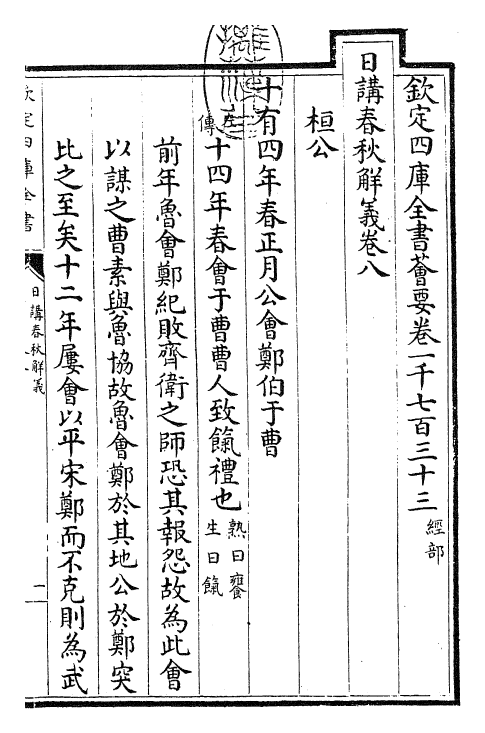 欽定四庫全書薈要卷一千七百三十三 經部
日講春秋解義卷八
桓公
十有四年春正月公會鄭伯于曹
左傳十四年春會于曹曹人致餼禮也 熟曰饔生曰餼
前年魯會鄭紀敗齊衛之師恐其報怨故為此會
以謀之曹素與魯協故魯會鄭於其地公於鄭突
比之至矣十二年屢會以平宋鄭而不克則為武
欽定四庫全書
日講春秋解義